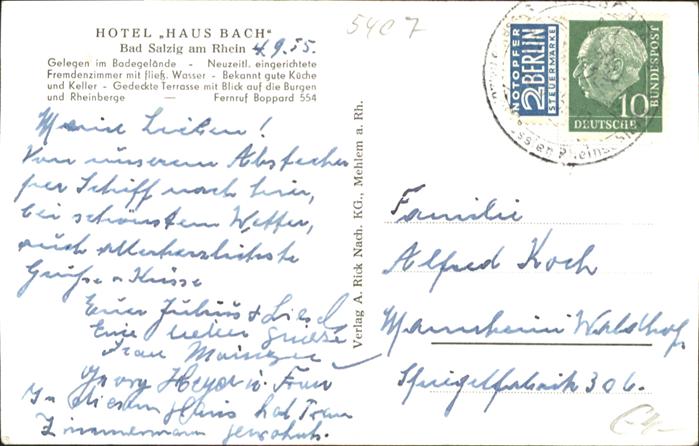 HOTEL „HAUS BACH"
Bad Salzig am Rhein 4.9.55.
Gelegen im Badegelände - Neuzeitl. eingerichtete
Fremdenzimmer mit fließ. Wasser - Bekannt gute Küche
und Keller - Gedeckte Terrasse mit Blick auf die Burgen
und Rheinberge — Fernruf Boppard 554
Meine Lieben!
Von unserem Abstecher
per Schiff nach hier,
bei schönstem Wetter,
auch allerherzlichste
Grüße u Küsse
Euer Julius + Liesel
Eine lieben Grüße
Frau Mainzer
Georg Heyd u. Frau
In diesem Haus hat Frau
Zimmermann gewohnt.
Verlag A. Rick Nach. KG., Mehlem a. Rh.
54C7
NOTOPFER
2 BERLIN
STEUERMARKE
10
DEUTSCHE
BUNDESPOST
Familie
Alfred Koch
Mannheim Waldhof
Spiegelfabrik 306.